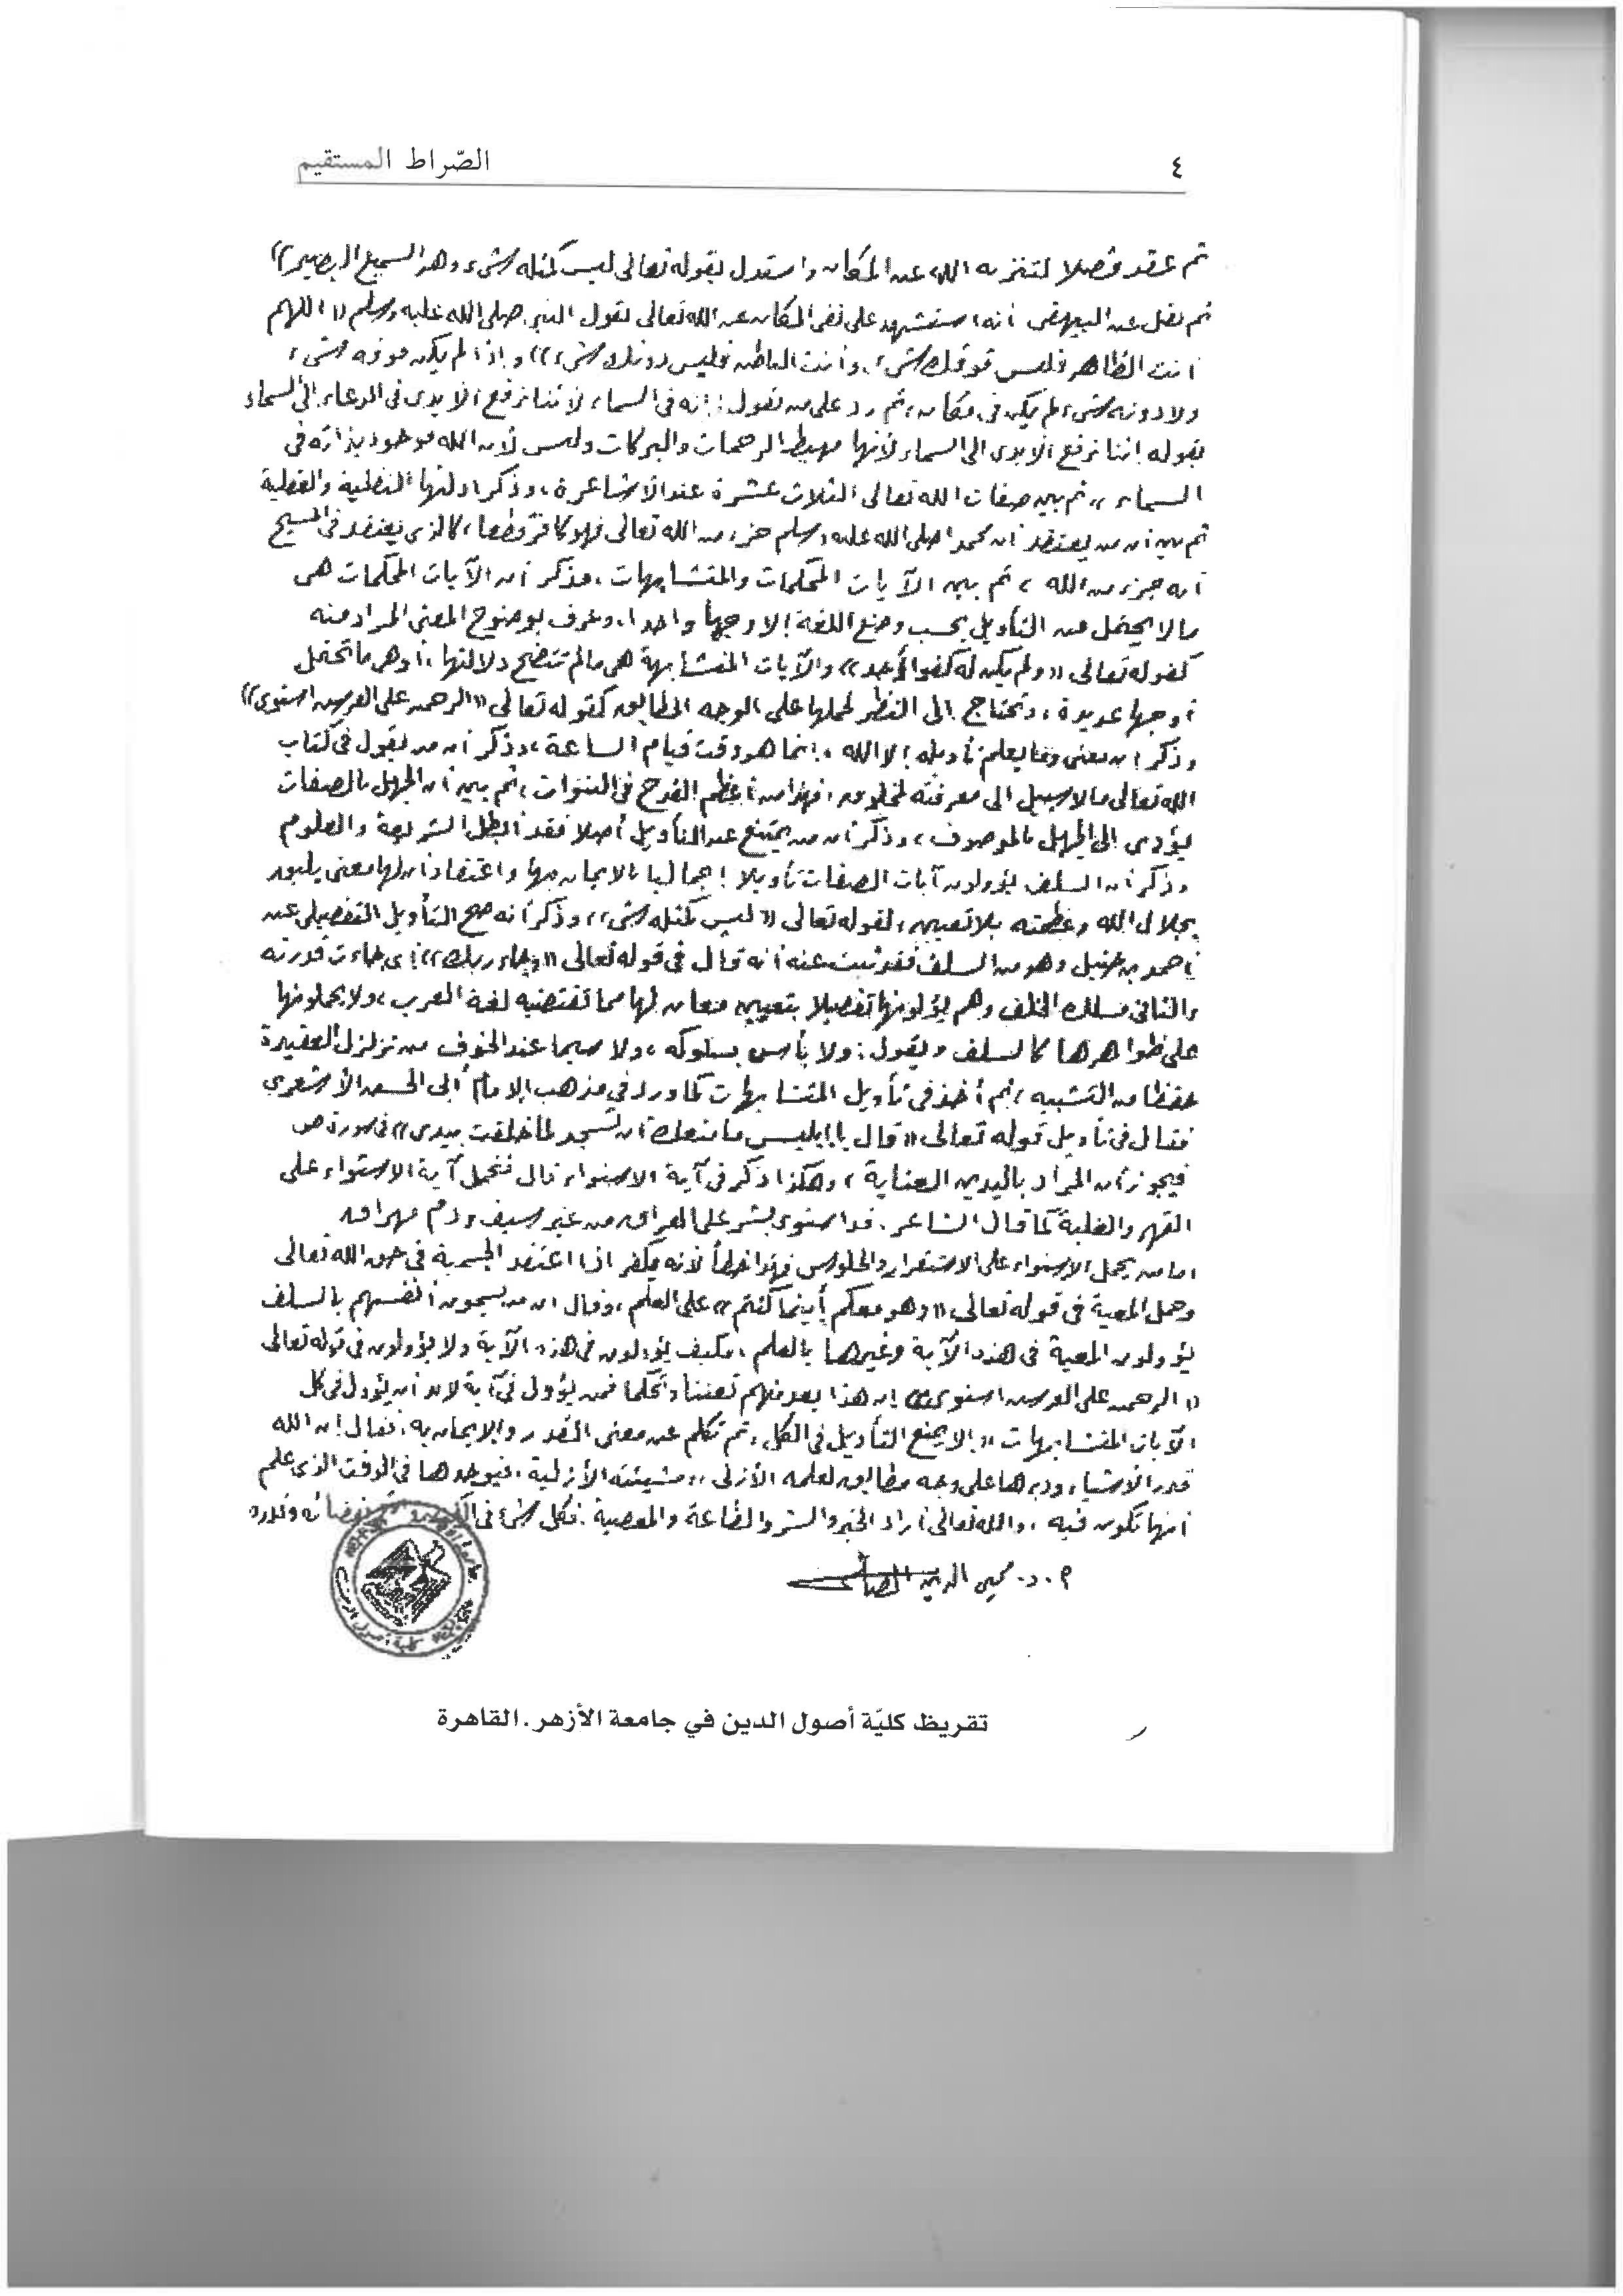 ٤
الصّراط المستقيم
ثم عقد فصلا لتنزيه الله عن المكان واستدل بقوله تعالى ليس كمثله شىء وهو السميع البصير))
ثم نقل عن البيهقى أنه استشهد على نفى المكان عن الله تعالى بقول النبى صلى الله عليه وسلم ((اللهم
أنت الظاهر فليس فوقك شىء، وأنت الباطن فليس دونك شىء)) وإذا لم يكن فوقه شىء
ولا دونه شىء لم يكن فى مكان، ثم رد على من يقول: إنه فى السماء لأننا نرفع الأيدى فى الدعاء إلى السماء
بقوله إننا نرفع الأيدى الى السماء لأنها مهبط الرحمات والبركات وليس لأن الله موجود بذاته فى
السماء، ثم بين صفات الله تعالى الثلاث عشرة عند الأشاعرة، وذكر أدلتها النقلية والعقلية
ثم بين أن من يعتقد أن محمدا صلى الله عليه وسلم جزء من الله تعالى فهو كافر قطعا، كالذى يعتقد فى المسيح
أنه جزء من الله، ثم بين الآيات المحكمات والمتشابهات، فذكر أن الآيات المحكمات هى
مالا يحتمل من التأويل بحسب وضع اللغة إلا وجها واحدا، وعرف بوضوح المعنى المراد منه
كقوله تعالى ((ولم يكن له كفوا أحد)) والآيات المتشابهة هى مالم تتضح دلالتها، أو هى ما تحتمل
أوجها عديدة، وتحتاج إلى النظر لحملها على الوجه المطابق كقوله تعالى ((الرحمن على العرش استوى))
وذكر أن معنى وما يعلم تأويله إلا الله، إنما هو وقت قيام الساعة، وذكر أن من يقول فى كتاب
الله تعالى مالا سبيل الى معرفته لمخلوق، فهذا من أعظم القدح فى النبوات، ثم بين أن الجهل بالصفات
يؤدى إلى الجهل بالموصوف، وذكر أن من يمتنع عن التأويل أصلا فقد أبطل الشريعة والعلوم
وذكر أن السلف يؤولون آيات الصفات تأويلا إجماليا بالايمان بها واعتقاد أن لها معنى يليق
بجلال الله وعظمته بلا تعيين، لقوله تعالى ((ليس كمثله شىء)) وذكر أنه صح التأويل التفصيلى عن
أحمد بن حنبل وهو من السلف فقد ثبت عنه أنه قال فى قوله تعالى ((وجاء ربك)) أى جاءت قدرته
والثانى مسلك الخلف وهم يؤولونها تفصيلا بتعيين معان لها مما تقتضيه لغة العرب، ولا يحملونها
على ظواهرها كالسلف ويقول: ولا بأس بسلوكه، ولا سيما عند الخوف من تزلزل العقيدة
حفظا من التشبيه، ثم أخذ فى تأويل المتشابهات كما ورد في مذهب الإمام أبى الحسن الأشعرى
فقال فى تأويل قوله تعالى ((قال يا إبليس ما منعك أن تسجد لما خلقت بيدى)) فى سورة ص
فيجوز أن المراد باليدين العناية، وهكذا ذكر فى آية الاستواء قال فتحمل آية الاستواء على
القهر والغلبة كما قال الشاعر. قد استوى بشر على العراق من غير سيف ودم مهراق
أما من يحمل الاستواء على الاستقرار والجلوس فهذا خطأ لأنه يكفر اذا اعتقد الجسمية فى حق الله تعالى
وحمل المعية فى قوله تعالى ((وهو معكم أينما كنتم)) على العلم، وقال ان من يسمون أنفسهم بالسلف
يؤولون المعية فى هذه الآية وغيرها بالعلم، فكيف يؤولون فى هذه الآية ولا يؤولون فى قوله تعالى
((الرحمن على العرش استوى)) إن هذا يعد منهم تعنتا وتحكما فمن يؤول فى آية لابد أن يؤول فى كل
الآيات المتشابهات، أو يمنع التأويل فى الكل، ثم تكلم عن معنى القدر والإيمان به. فقال إن الله
قدر الأشياء ودبرها على وجه مطابق لعلمه الأزلى، ومشيئته الأزلية. فيوجدها فى الوقت الذى علم
أنها تكون فيه، والله تعالى أراد الخير والشر والطاعة والمعصية. فكل شىء فى بقضائه وقدره
أ. د. محيى الدين الصافى
كلية أصول الدين
تقريظ كليّة أصول الدين في جامعة الأزهر. القاهرة